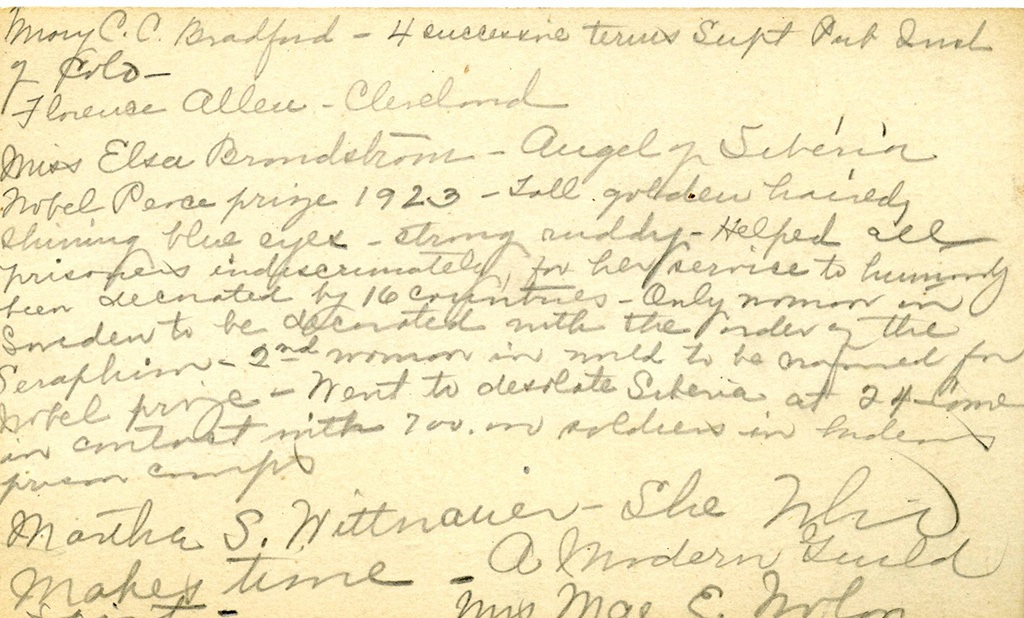 Mary C. C. Bradford - 4 successive terms Supt Pub Inst
of Colo -
Florence Allen - Cleveland
Miss Elsa Brandström - Angel of Siberia
Nobel Peace prize 1923 - Tall golden haired,
shining blue eyes - strong ruddy - Helped all
prisoners indiscrimately, for her service to humanity
been decorated by 16 countries - Only woman in
Sweden to be decorated with the order of the
Seraphim - 2nd woman in world to be named for
Nobel prize - Went to desolate Siberia at 24 - Came
in contact with 700.00 soldiers in
prison camps
Martha S. Wittnauer - She Who
Makes time - A Modern Guild
Mrs Mae E. Nolan